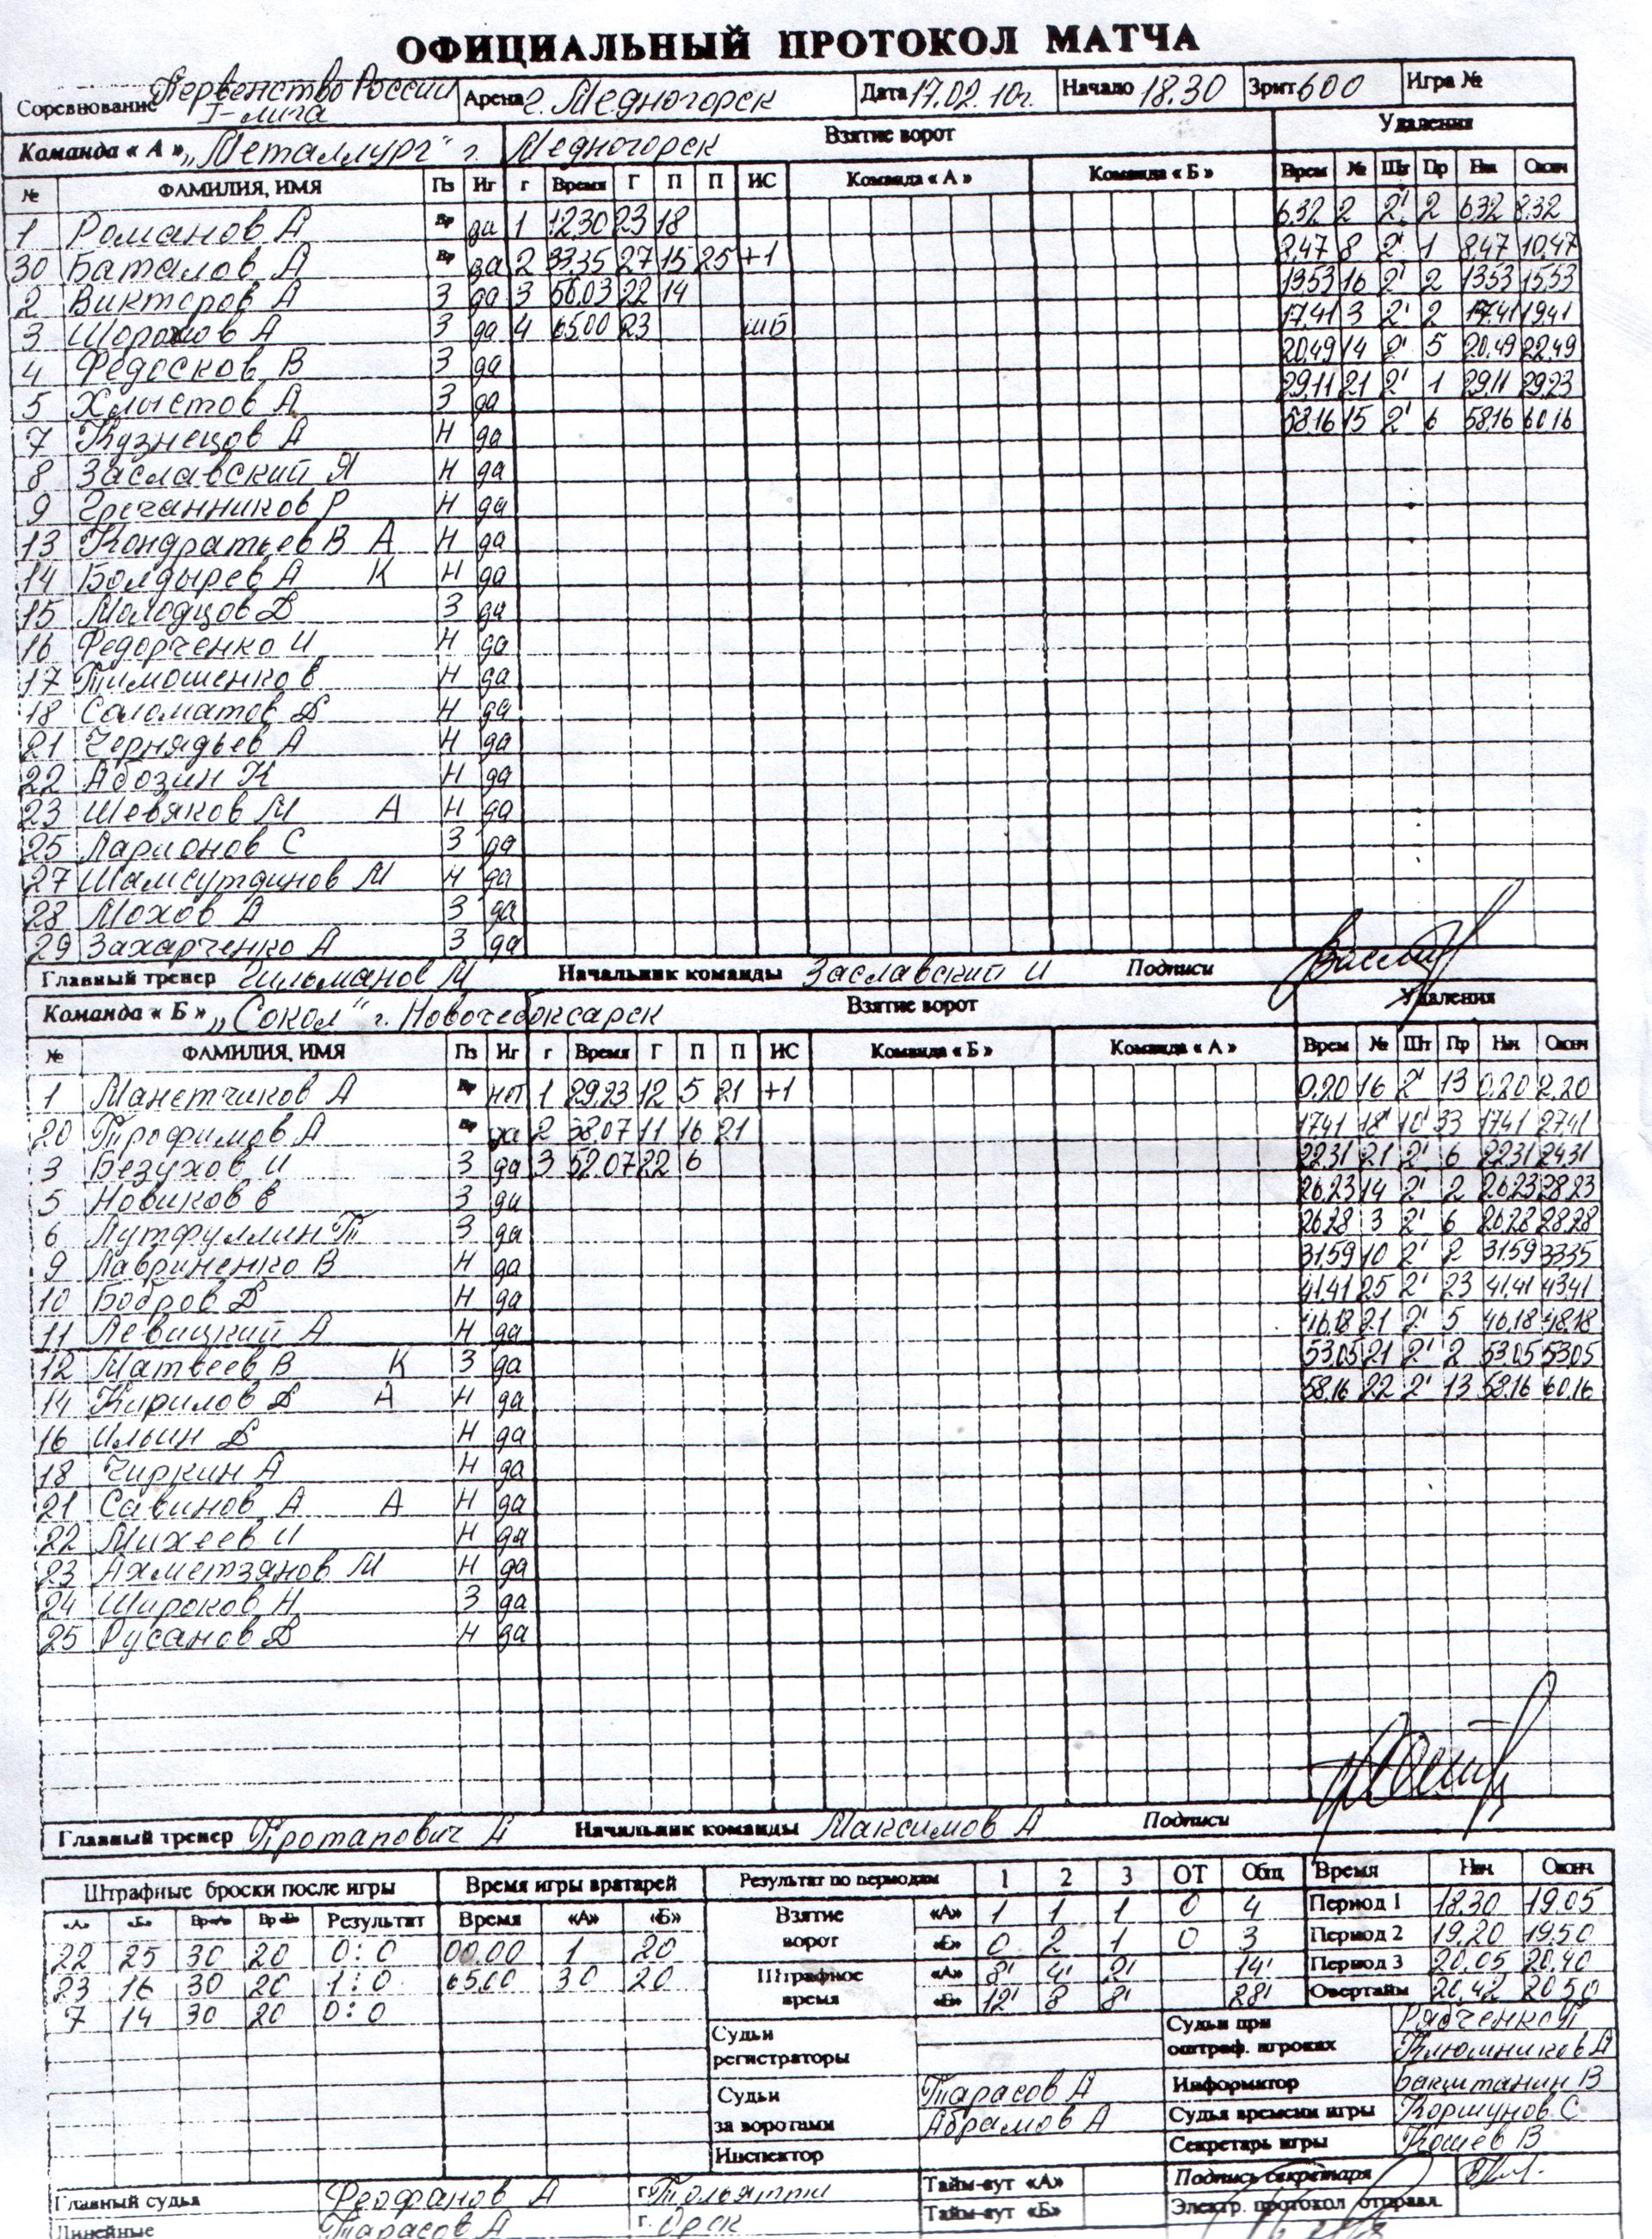 ОФИЦИАЛЬНЫЙ ПРОТОКОЛ МАТЧА
Соревнование Первенство России I-лига Арена г. Медногорск Дата 17.02.10г. Начало 18.30 Зрит 600 Игра №
Команда « А » „Металлург" г. Медногорск Взятие ворот Удаления
№ ФАМИЛИЯ, ИМЯ Пз Иг г Время Г П П ИС Команда « А » Команда « Б » Врем № Шт Пр Нач Оконч
1 Романов А Вр да 1 12.30 23 18 6.32 2 2' 2 6.32 8.32
30 Баталов А Вр да 2 33.35 27 15 25 +1 8.47 8 2' 1 8.47 10.47
2 Викторов А З да 3 56.03 22 14 13.53 16 2' 2 13.53 15.53
3 Шорохов А З да 4 65.00 23 шб 17.41 3 2' 2 17.41 19.41
4 Федосков В З да 20.49 14 2' 5 20.49 22.49
5 Хлыстов А З да 29.11 21 2' 1 29.11 29.23
7 Кузнецов А Н да 58.16 15 2' 6 58.16 60.16
8 Заславский Я Н да
9 Гречанников Р Н да
13 Кондратьев В А Н да
14 Болдырев А К Н да
15 Молодцов Д З да
16 Федорченко И Н да
17 Тимошенко В Н да
18 Соломатов Д Н да
21 Чернядьев А Н да
22 Абозин К Н да
23 Шевяков М А Н да
25 Ларионов С З да
27 Шамсутдинов М Н да
28 Мохов А З да
29 Захарченко А З да
Главный тренер Гильманов М Начальник команды Заславский И Подписи
Команда « Б » „Сокол" г. Новочебоксарск Взятие ворот Удаления
№ ФАМИЛИЯ, ИМЯ Пз Иг г Время Г П П ИС Команда « Б » Команда « А » Врем № Шт Пр Нач Оконч
1 Манетчиков А Вр нет 1 29.23 12 5 21 +1 0.20 16 2' 13 0.20 2.20
20 Трофимов А Вр да 2 38.07 11 16 21 17.41 18 10' 33 17.41 27.41
3 Безухов И З да 3 52.07 22 6 22.31 21 2' 6 22.31 24.31
5 Новиков В З да 26.23 14 2' 2 26.23 28.23
6 Лутфуллин Т З да 26.28 3 2' 6 26.28 28.28
9 Лавриненко В Н да 31.59 10 2' 2 31.59 33.35
10 Бобров Д Н да 41.41 25 2' 23 41.41 43.41
11 Левицкий А Н да 46.18 21 2' 5 46.18 48.18
12 Матвеев В К З да 53.05 21 2' 2 53.05 53.05
14 Кирилов Д А Н да 58.16 22 2' 13 58.16 60.16
16 Ильин Д Н да
18 Чиркин А Н да
21 Савинов А А Н да
22 Михеев И Н да
23 Ахметзянов М Н да
24 Широков Н З да
25 Русанов Д Н да
Главный тренер Протапович А Начальник команды Максимов А Подписи
Штрафные броски после игры Время игры вратарей Результат по периодам 1 2 3 ОТ Общ Время Нач Оконч
«А» «Б» Вр«А» Вр«Б» Результат Время «А» «Б» Взятие ворот «А» 1 1 1 0 4 Период 1 18.30 19.05
22 25 30 20 0:0 00.00 1 20 «Б» 0 2 1 0 3 Период 2 19.20 19.50
23 16 30 20 1:0 65.00 30 20 Штрафное время «А» 8' 4' 2' 14' Период 3 20.05 20.40
7 14 30 20 0:0 «Б» 12' 8 8' 28' Овертайм 20.42 20.50
Судьи регистраторы Судьи при оштраф. игроках Рябченко Клюшников А
Судьи за воротами Тарасов А Абрамов А Информатор Бакштанин В
Судья времени игры Коршунов С
Инспектор Секретарь игры Кошев В
Тайм-аут «А» Подпись секретаря
Главный судья Феофанов А г. Тольятти Тайм-аут «Б» Электр. протокол отправл.
Линейные Тарасов А г. Орск